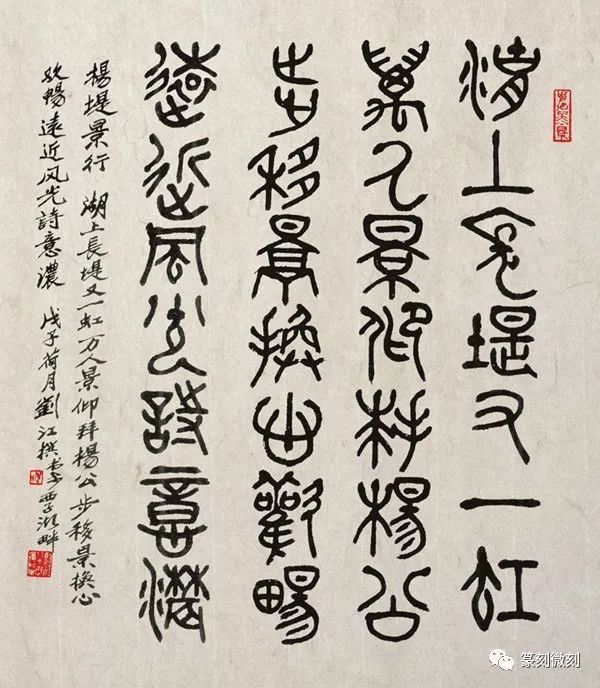 湖上長堤又一虹
萬人景仰拜楊公
步移景換心歡暢
遠近風光詩意濃
楊堤景行 湖上長堤又一虹万人景仰拜楊公步移景換心
欢暢遠近风光詩意濃 戊子荷月劉江撰书于西子湖畔
篆刻微刻